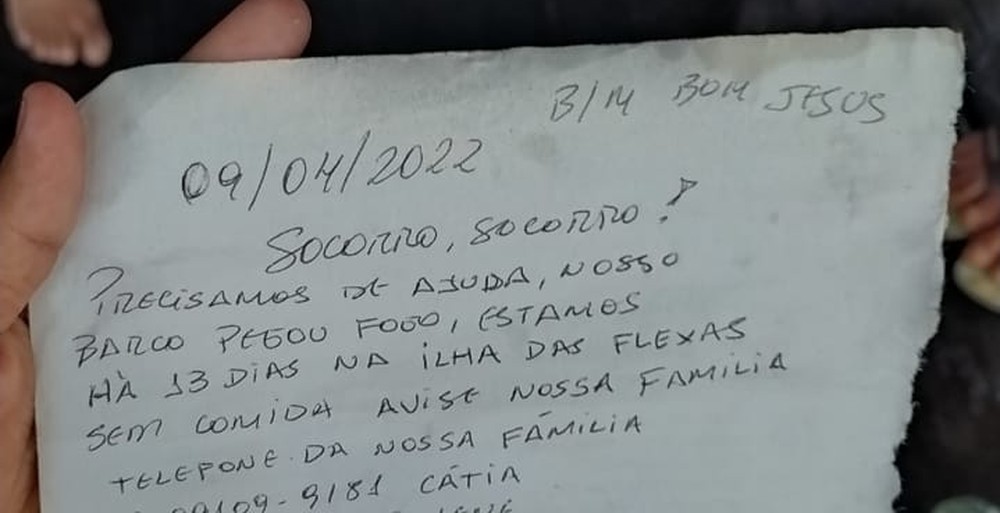 B/M BOM JESUS
09/04/2022
SOCORRO, SOCORRO!
PRECISAMOS DE AJUDA, NOSSO
BARCO PEGOU FOGO, ESTAMOS
HÀ 13 DIAS NA ILHA DAS FLEXAS
SEM COMIDA AVISE NOSSA FAMILIA
TELEFONE DA NOSSA FAMILIA
9109-9181 CÁTIA